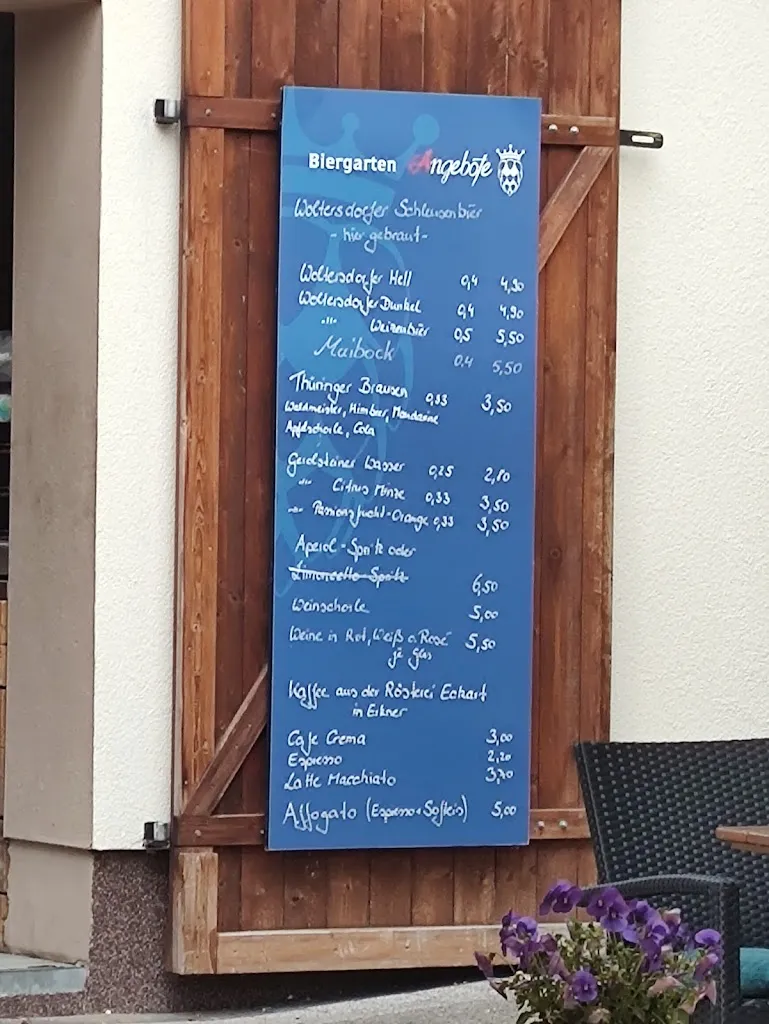 Biergarten Angebote
Woltersdorfer Schleusenbier
- hier gebraut -
Woltersdorfer Hell 0,4 4,90
Woltersdorfer Dunkel 0,4 4,90
-"- Weizenbier 0,5 5,50
Maibock 0,4 5,50
Thüringer Brausen 0,33 3,50
Waldmeister, Himbeer, Mandarine
Apfelschorle, Cola
Gerolsteiner Wasser 0,25 2,80
-"- Citrus Minze 0,33 3,50
-"- Passionsfrucht-Orange 0,33 3,50
Aperol-Spritz oder
Limoncello Spritz 6,50
Weinschorle 5,00
Weine in Rot, Weiß o. Rosé 5,50
je Glas
Kaffee aus der Rösterei Eckart
in Erkner
Cafe Crema 3,00
Espresso 2,20
Latte Macchiato 3,70
Affogato (Espresso + Softeis) 5,00